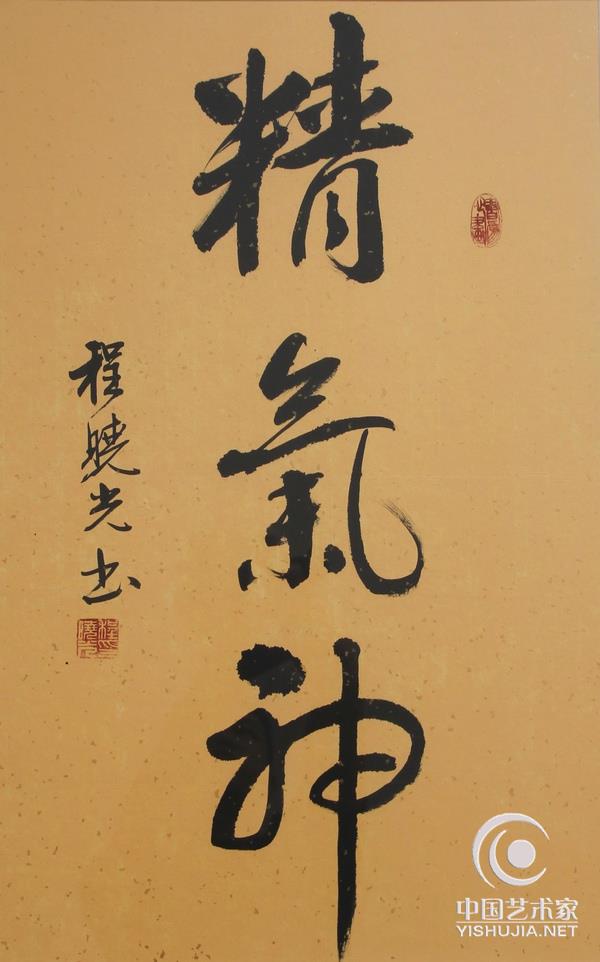 精氣神
程曉光书
中国艺术家
YISHUJIA.NET